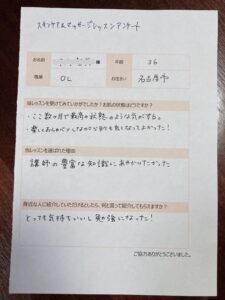 スキンケア&マッサージレッスンアンケート
お名前 様 年齢 36
職業 OL お住まい 名古屋市
当レッスンを受けてみていかがでしたか?お肌の状態はどうですか?
・ここ数ヶ月で最高の状態のような気がする。
・楽しくおしゃべりしながらお肌も良くなってよかった!
当レッスンを選ばれた理由
講師の豊富な知識にあやかりたかった
身近な人に紹介していただけるとしたら、何と言って紹介してもらえますか?
とっても気持ちいいし勉強になった!
ご協力ありがとうございました。